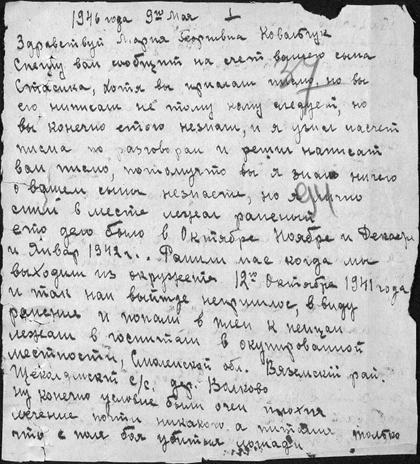 1946 года 9го Мая 1
Здравствуй Мария Ковальчук
Спешу вам сообщит на счет вашего сына
Стасика, хотя вы прислали писмо, но вы
его написали не тому кому следует, но
вы конечно етого незнали, и я узнал насчет
писма по разговорам и решил написат
вам писмо, потомучто вы я знаю ничего
о вашем сыне незнаете, но я лично
с ним в месте лежал раненый
ето дело было в Октябре Ноябре и Декабре
и Январ 1942 г.. Ранили нас когда мы
выходили из окружения 12го Октября 1941 года
и так нам выйти непришлос, в виду
ранение и попали в плен к немцам
лежали в госпитали в окупированной
местности, Смоленской обл. Вяземский рай.
с/с. дер. Волково
ну конечно условие были очен плохия
лечение почти никакого а питалис только
что с поля боя убитыя лошади
37
94